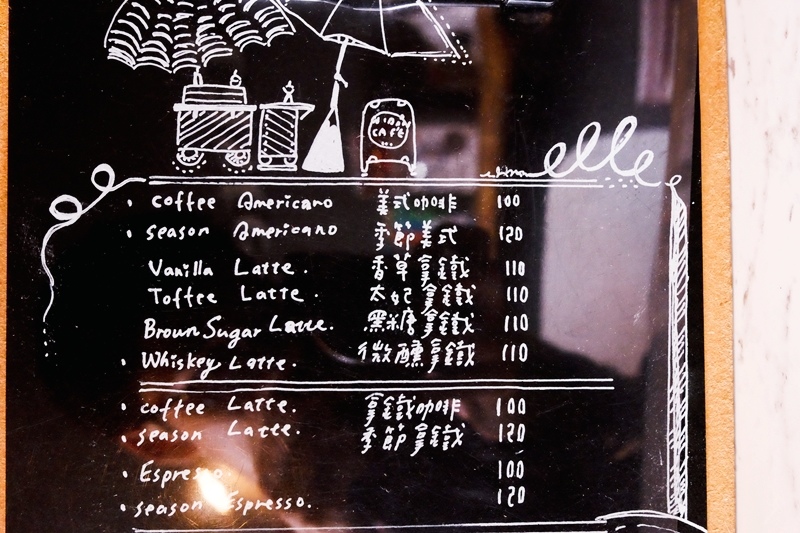 CAFÉ
coffee Americano 美式咖啡 100
season Americano 季節美式 120
Vanilla Latte. 香草拿鐵 110
Toffee Latte. 太妃拿鐵 110
Brown Sugar Latte. 黑糖拿鐵 110
Whiskey Latte. 微醺拿鐵 110
coffee Latte. 拿鐵咖啡 100
season Latte. 季節拿鐵 120
Espresso. 100
season Espresso. 120